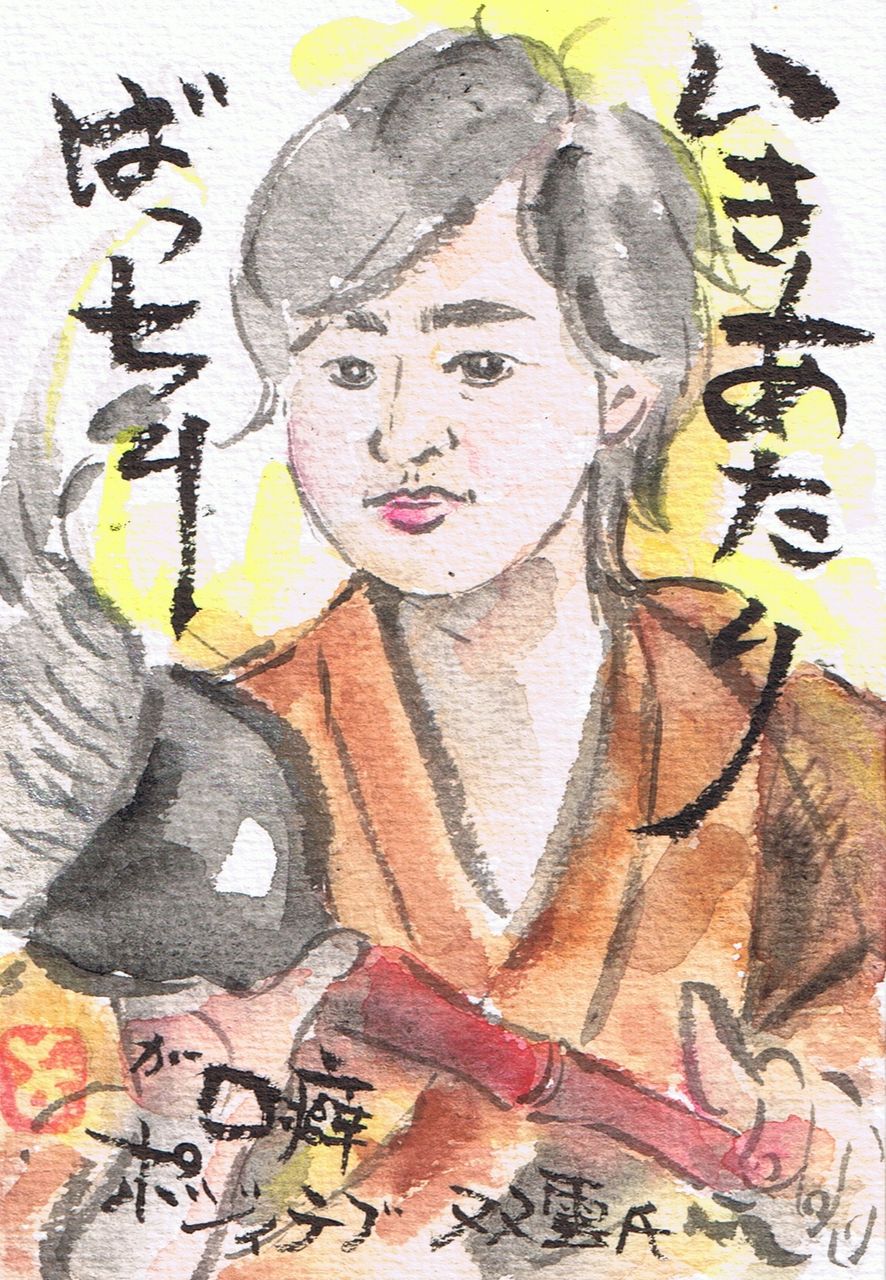 いきあたり
ばっちり
が口癖
ポジティブ 双雲氏